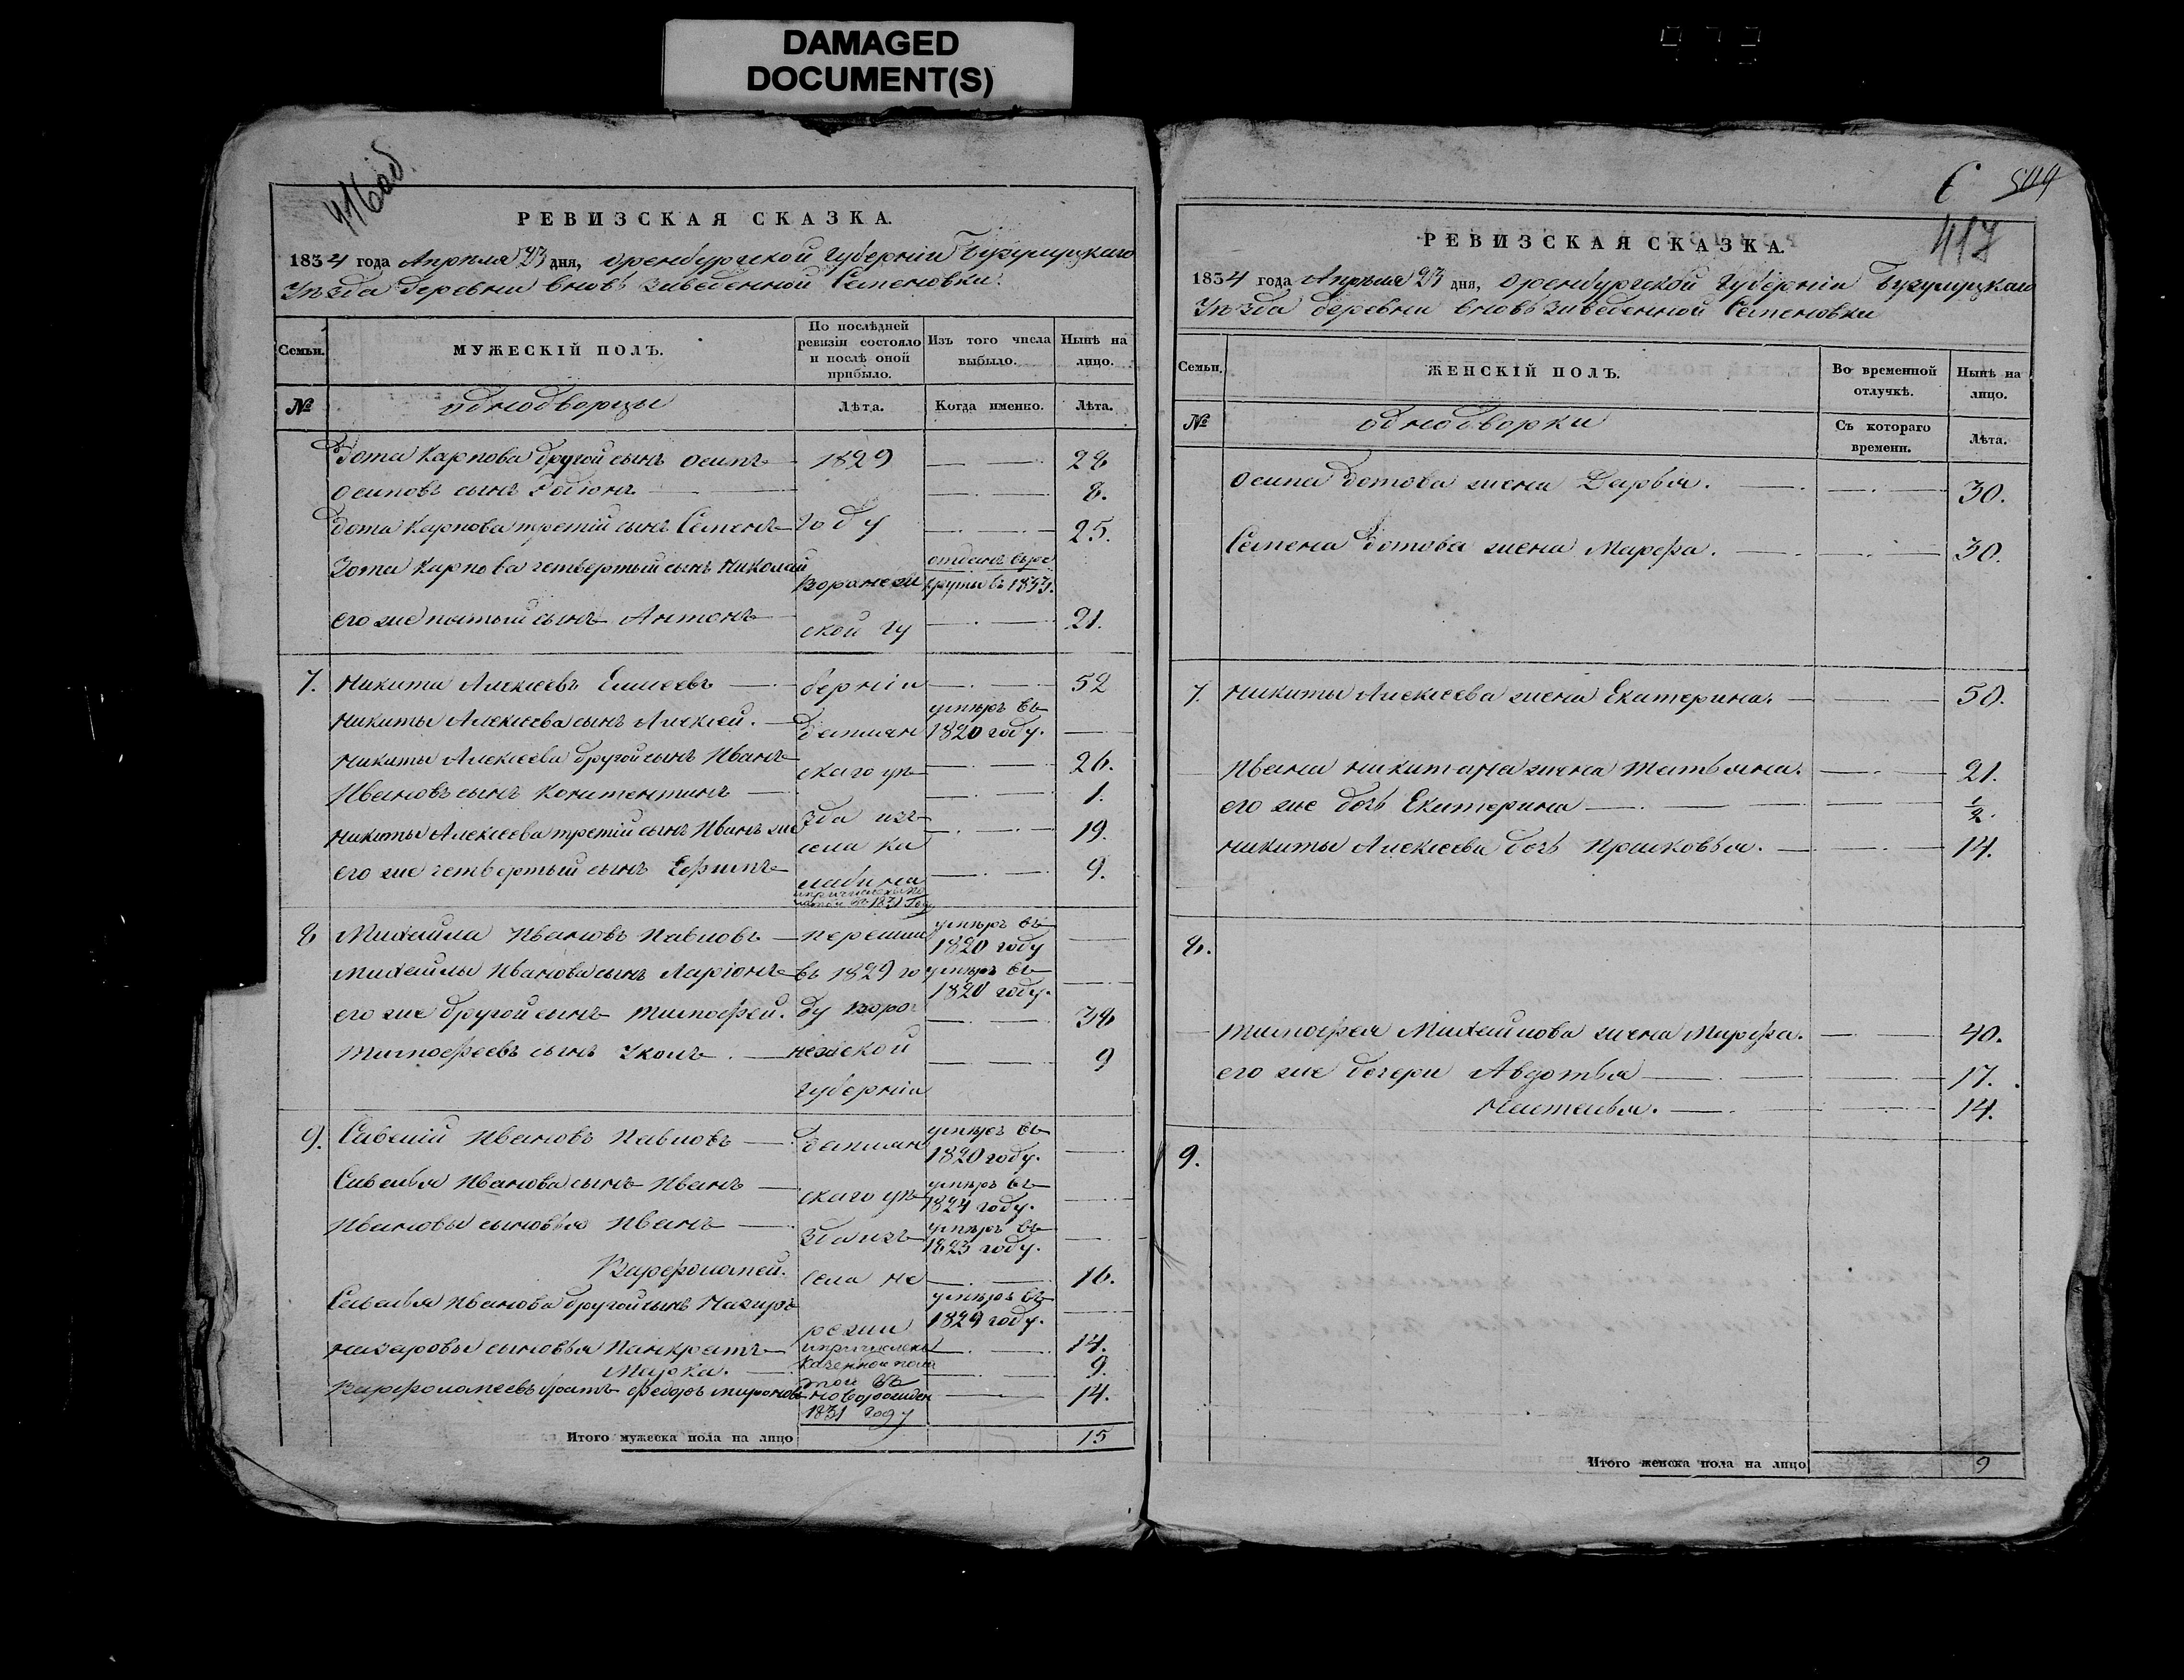 DAMAGED
DOCUMENT(S)
416 об.
РЕВИЗСКАЯ СКАЗКА.
1834 года Апреля 23 дня, Оренбургской Губерніи Бузулуцкаго
Уезда деревни вновь заведенной Семеновки.
Семьи.
МУЖЕСКІЙ ПОЛЪ.
По послѣдней ревизіи состояло и послѣ оной прибыло.
Изъ того числа выбыло.
Нынѣ на лицо.
№
однодворцы
Лѣта.
Когда именно.
Лѣта.
Зота Карпова другой сынъ Осипъ 1829 28
Осиповъ сынъ Родіонъ 8.
Зота Карпова третій сынъ Семенъ году 25.
Зота Карпова четвертый сынъ Николай Воронеж отданъ въ рекруты въ 1833.
его же пятый сынъ Антонъ ской гу 21.
7. Никита Алексеевъ Елисеевъ берніи 52
Никиты Алексеева сынъ Алексей. умеръ въ 1820 году.
Никиты Алексеева другой сынъ Иванъ скаго уе 26.
Ивановъ сынъ Констентинъ 1.
Никиты Алексеева третій сынъ Иванъ же зда изъ 19.
его же четвертый сынъ Ефимъ села Ка 9.
1831 году
8 Михайла Ивановъ Павловъ умеръ въ 1820 году
Михайлы Иванова сынъ Ларіонъ въ 1829 го умеръ въ 1820 году.
его же другой сынъ Тимофей. ду Воро 38
Тимофеевъ сынъ нежской 9
Губерніи
9. Савелій Ивановъ Павловъ умеръ въ 1820 году.
Савелья Иванова сынъ Иванъ скаго уе умеръ въ 1824 году.
Ивановы сыновья Иванъ зда изъ умеръ въ 1823 году.
Варфоломей. села 16.
Савелья Иванова другой сынъ Назаръ умеръ въ 1829 году.
Назаровы сыновья Панкратъ 14.
Марка. 9.
Варфоломеевъ братъ Федоръ 14.
1831 году
Итого мужеска пола на лицо 15
417
РЕВИЗСКАЯ СКАЗКА.
1834 года Апреля 23 дня, Оренбургской Губерніи Бузулуцкаго
Уезда деревни вновь заведенной Семеновки
Семьи.
ЖЕНСКІЙ ПОЛЪ.
Во временной отлучкѣ.
Нынѣ на лицо.
№
однодворки
Съ котораго времени.
Лѣта.
Осипа Зотова жена Дарья. 30.
Семена Зотова жена Марфа. 30.
7. Никиты Алексеева жена Екатерина. 50.
Ивана Никитина жена Татьяна. 21.
его же дочь Екатерина ½.
Никиты Алексеева дочь Прасковья. 14.
8.
Тимофея Михайлова жена Марфа. 40.
его же дочери Авдотья 17.
Наталья. 14.
9.
Итого женска пола на лицо 9